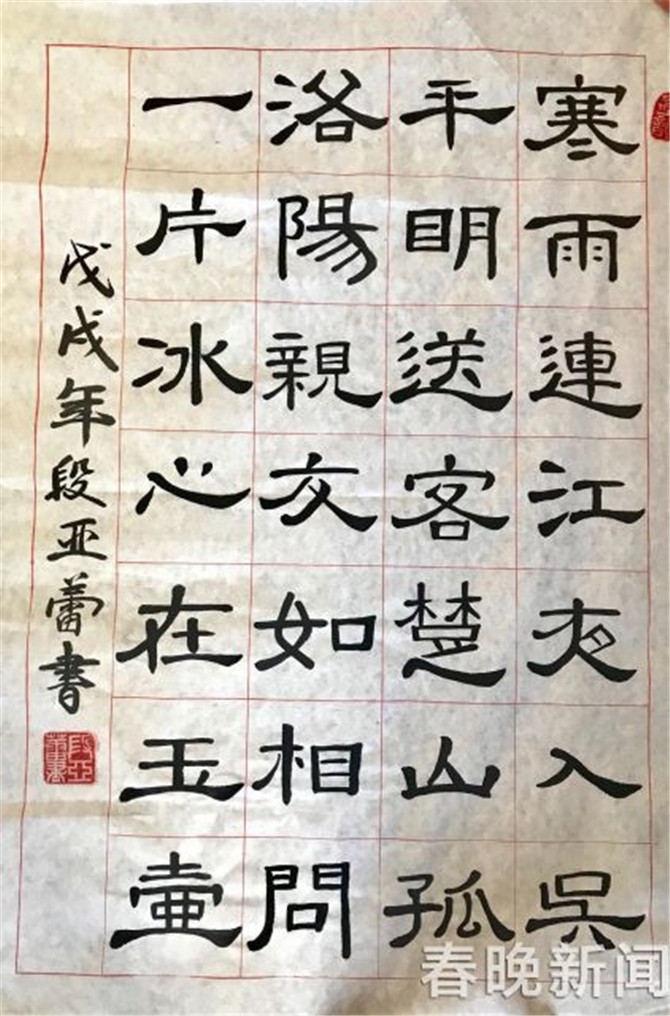 寒雨連江夜入吳
平明送客楚山孤
洛陽親友如相問
一片冰心在玉壺
戊戌年段亚蕾書
段亞蕾書
春晚新闻